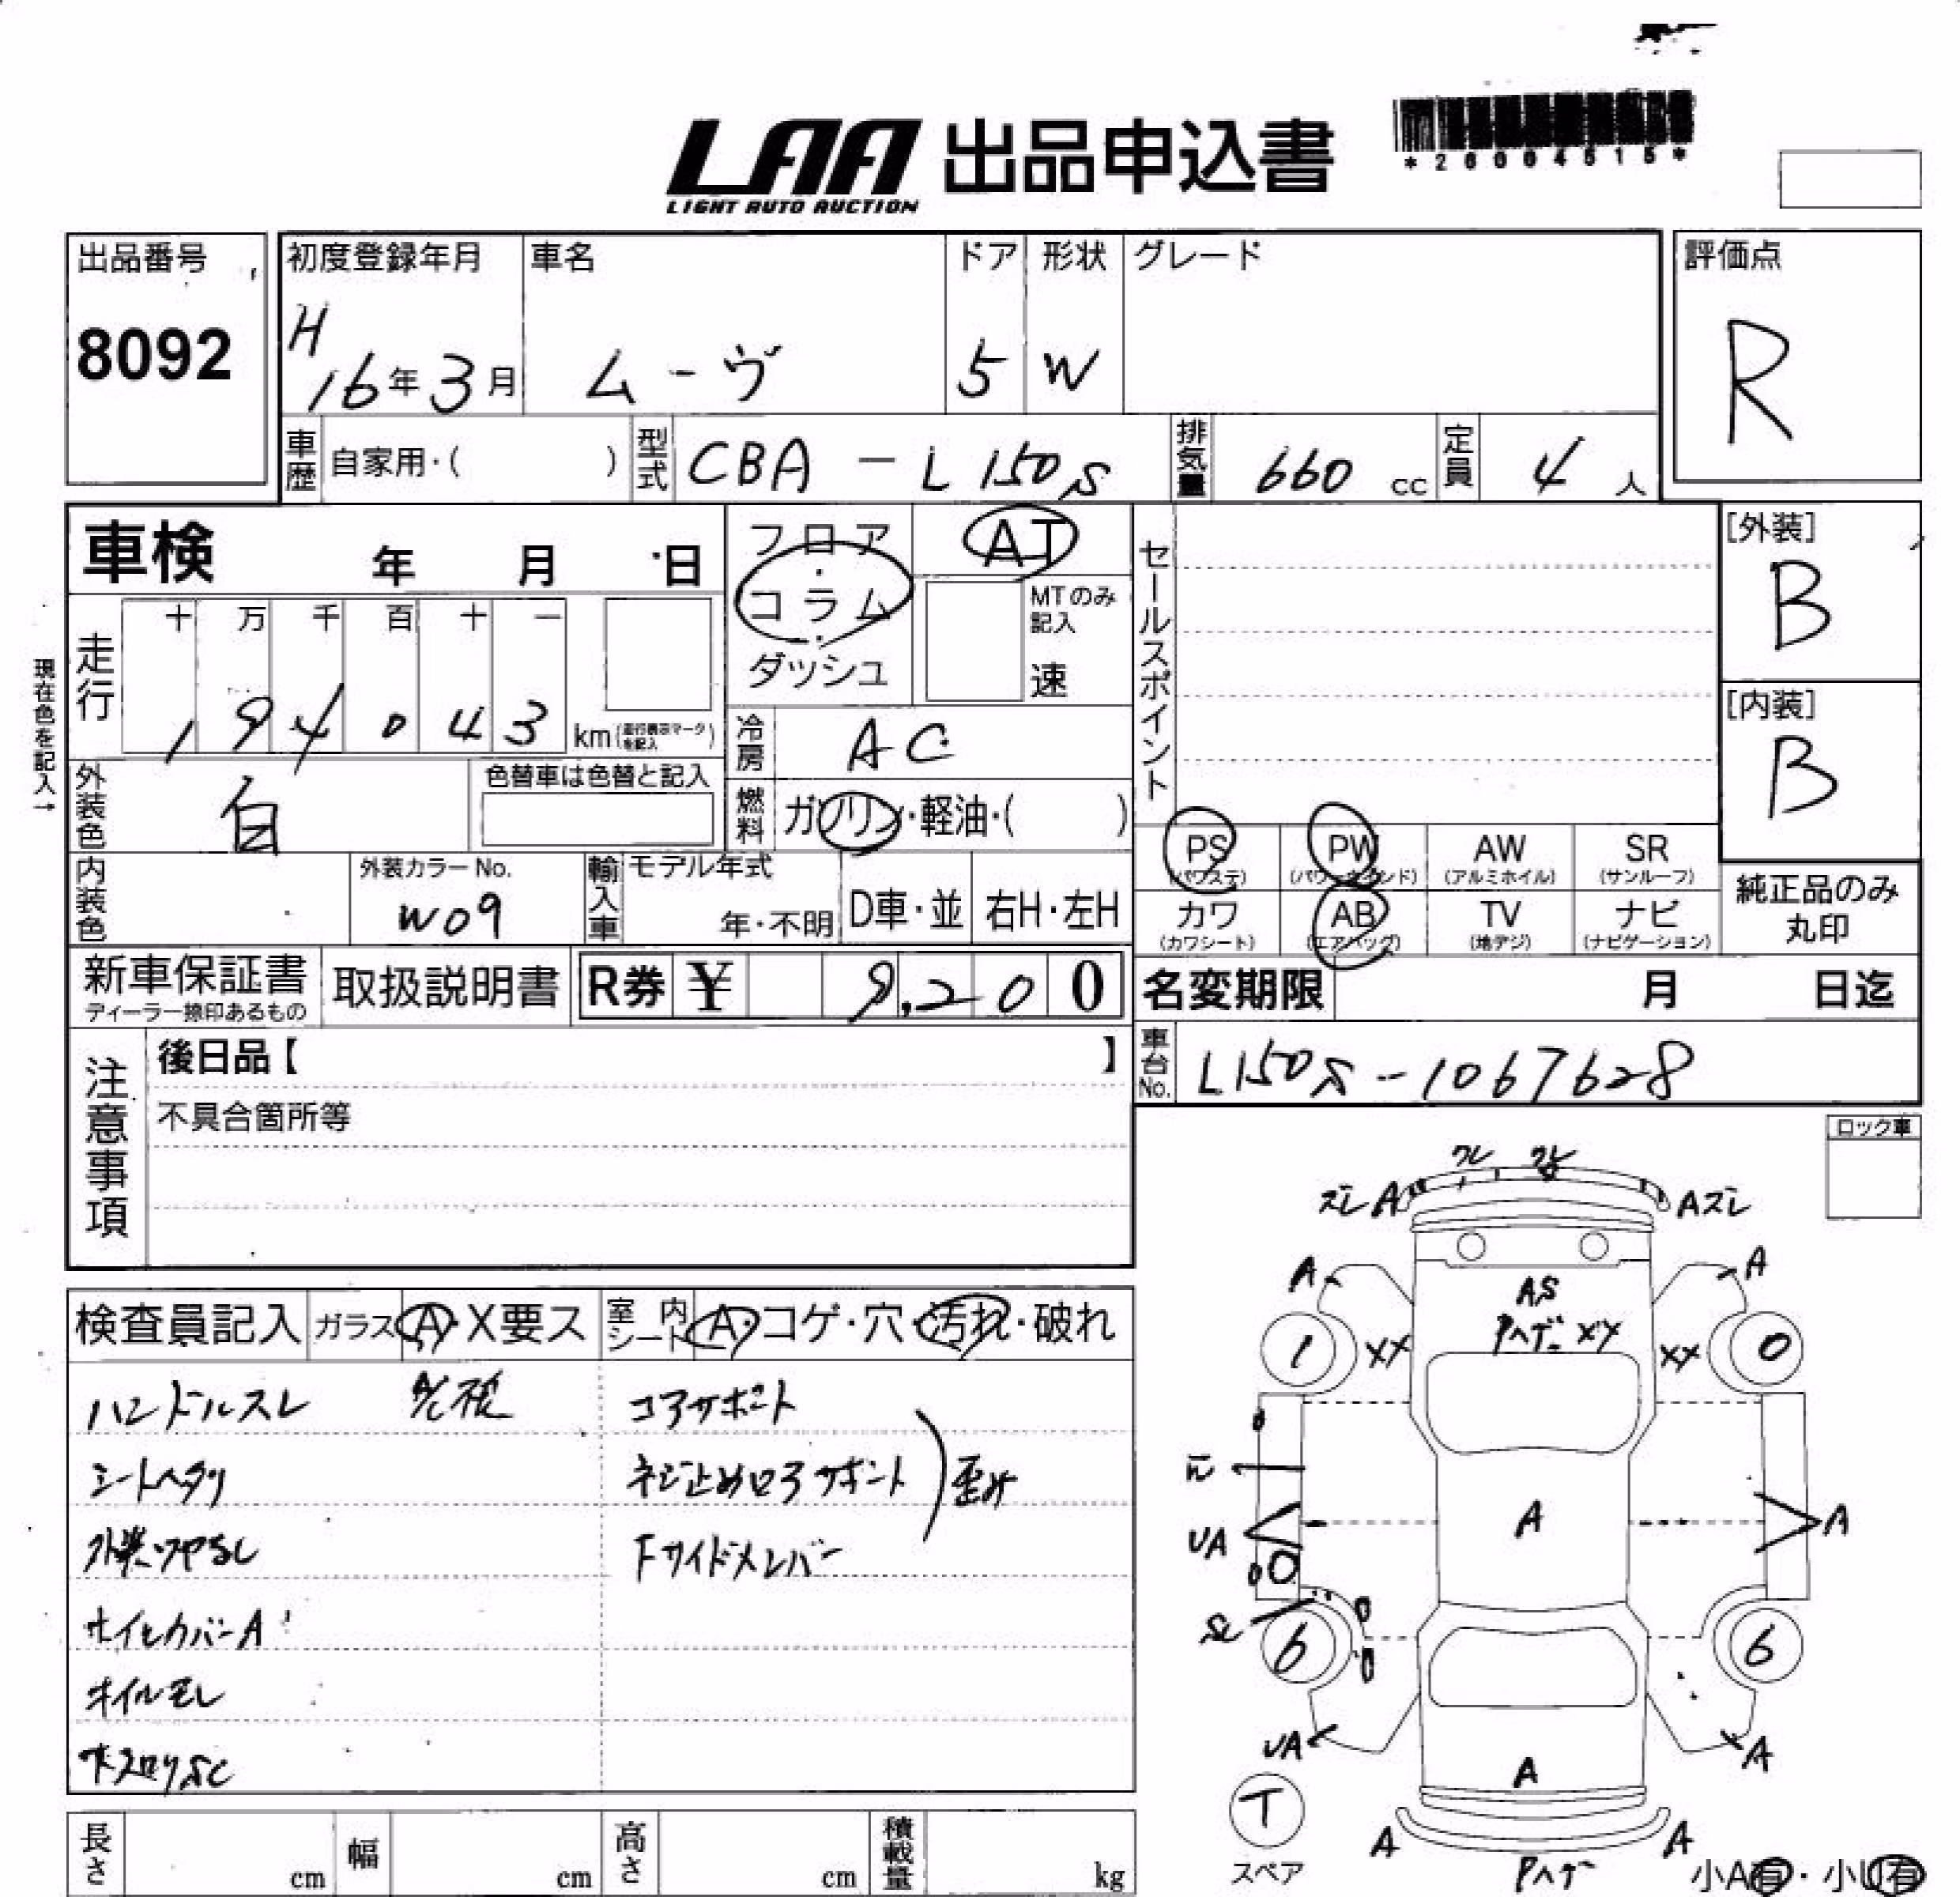 LAA 出品申込書
LIGHT AUTO AUCTION
*26004515*
出品番号
8092
初度登録年月
H
16年3月
車名
ムーヴ
ドア
5
形状
W
グレード
評価点
R
車歴
自家用・( )
型式
CBA-L150S
排気量
660 cc
定員
4人
車検 年 月 日
フロア
・
コラム
・
ダッシュ
AT
MTのみ
記入
速
セールスポイント
[外装]
B
[内装]
B
現在色を記入→
走行
十 万 千 百 十 一
1 9 4 0 4 3 km(走行表示マークを記入)
冷房
AC
外装色
白
色替車は色替と記入
燃料
ガソリン・軽油・( )
内装色
外装カラーNo.
W09
輸入車
モデル年式
年・不明
D車・並
右H・左H
PS
(パワステ)
PW
(パワーウインド)
AW
(アルミホイル)
SR
(サンルーフ)
カワ
(カワシート)
AB
(エアバッグ)
TV
(地デジ)
ナビ
(ナビゲーション)
純正品のみ
丸印
新車保証書
ディーラー捺印あるもの
取扱説明書
R券 ¥ 9,200
名変期限 月 日迄
注意事項
後日品【 】
不具合箇所等
車台No.
L150S-1067628
ロック車
検査員記入
ガラス A・X要ス
室内シート A・コゲ・穴・汚れ・破れ
ハンドルスレ
シートヘタリ
外装ツヤなし
ホイルカバーA
オイルモレ
コアサポート
ネジ止めロアサポート
Fサイドメンバー
歪み
ワレ
ズレA
Aズレ
A
A
AS
Pハゲ XX
1
XX
XX
0
UA
A
A
6
6
UA
A
A
T
スペア
A
A
Pハゲ
小A有・小U有
長さ cm
幅 cm
高さ cm
積載量 kg